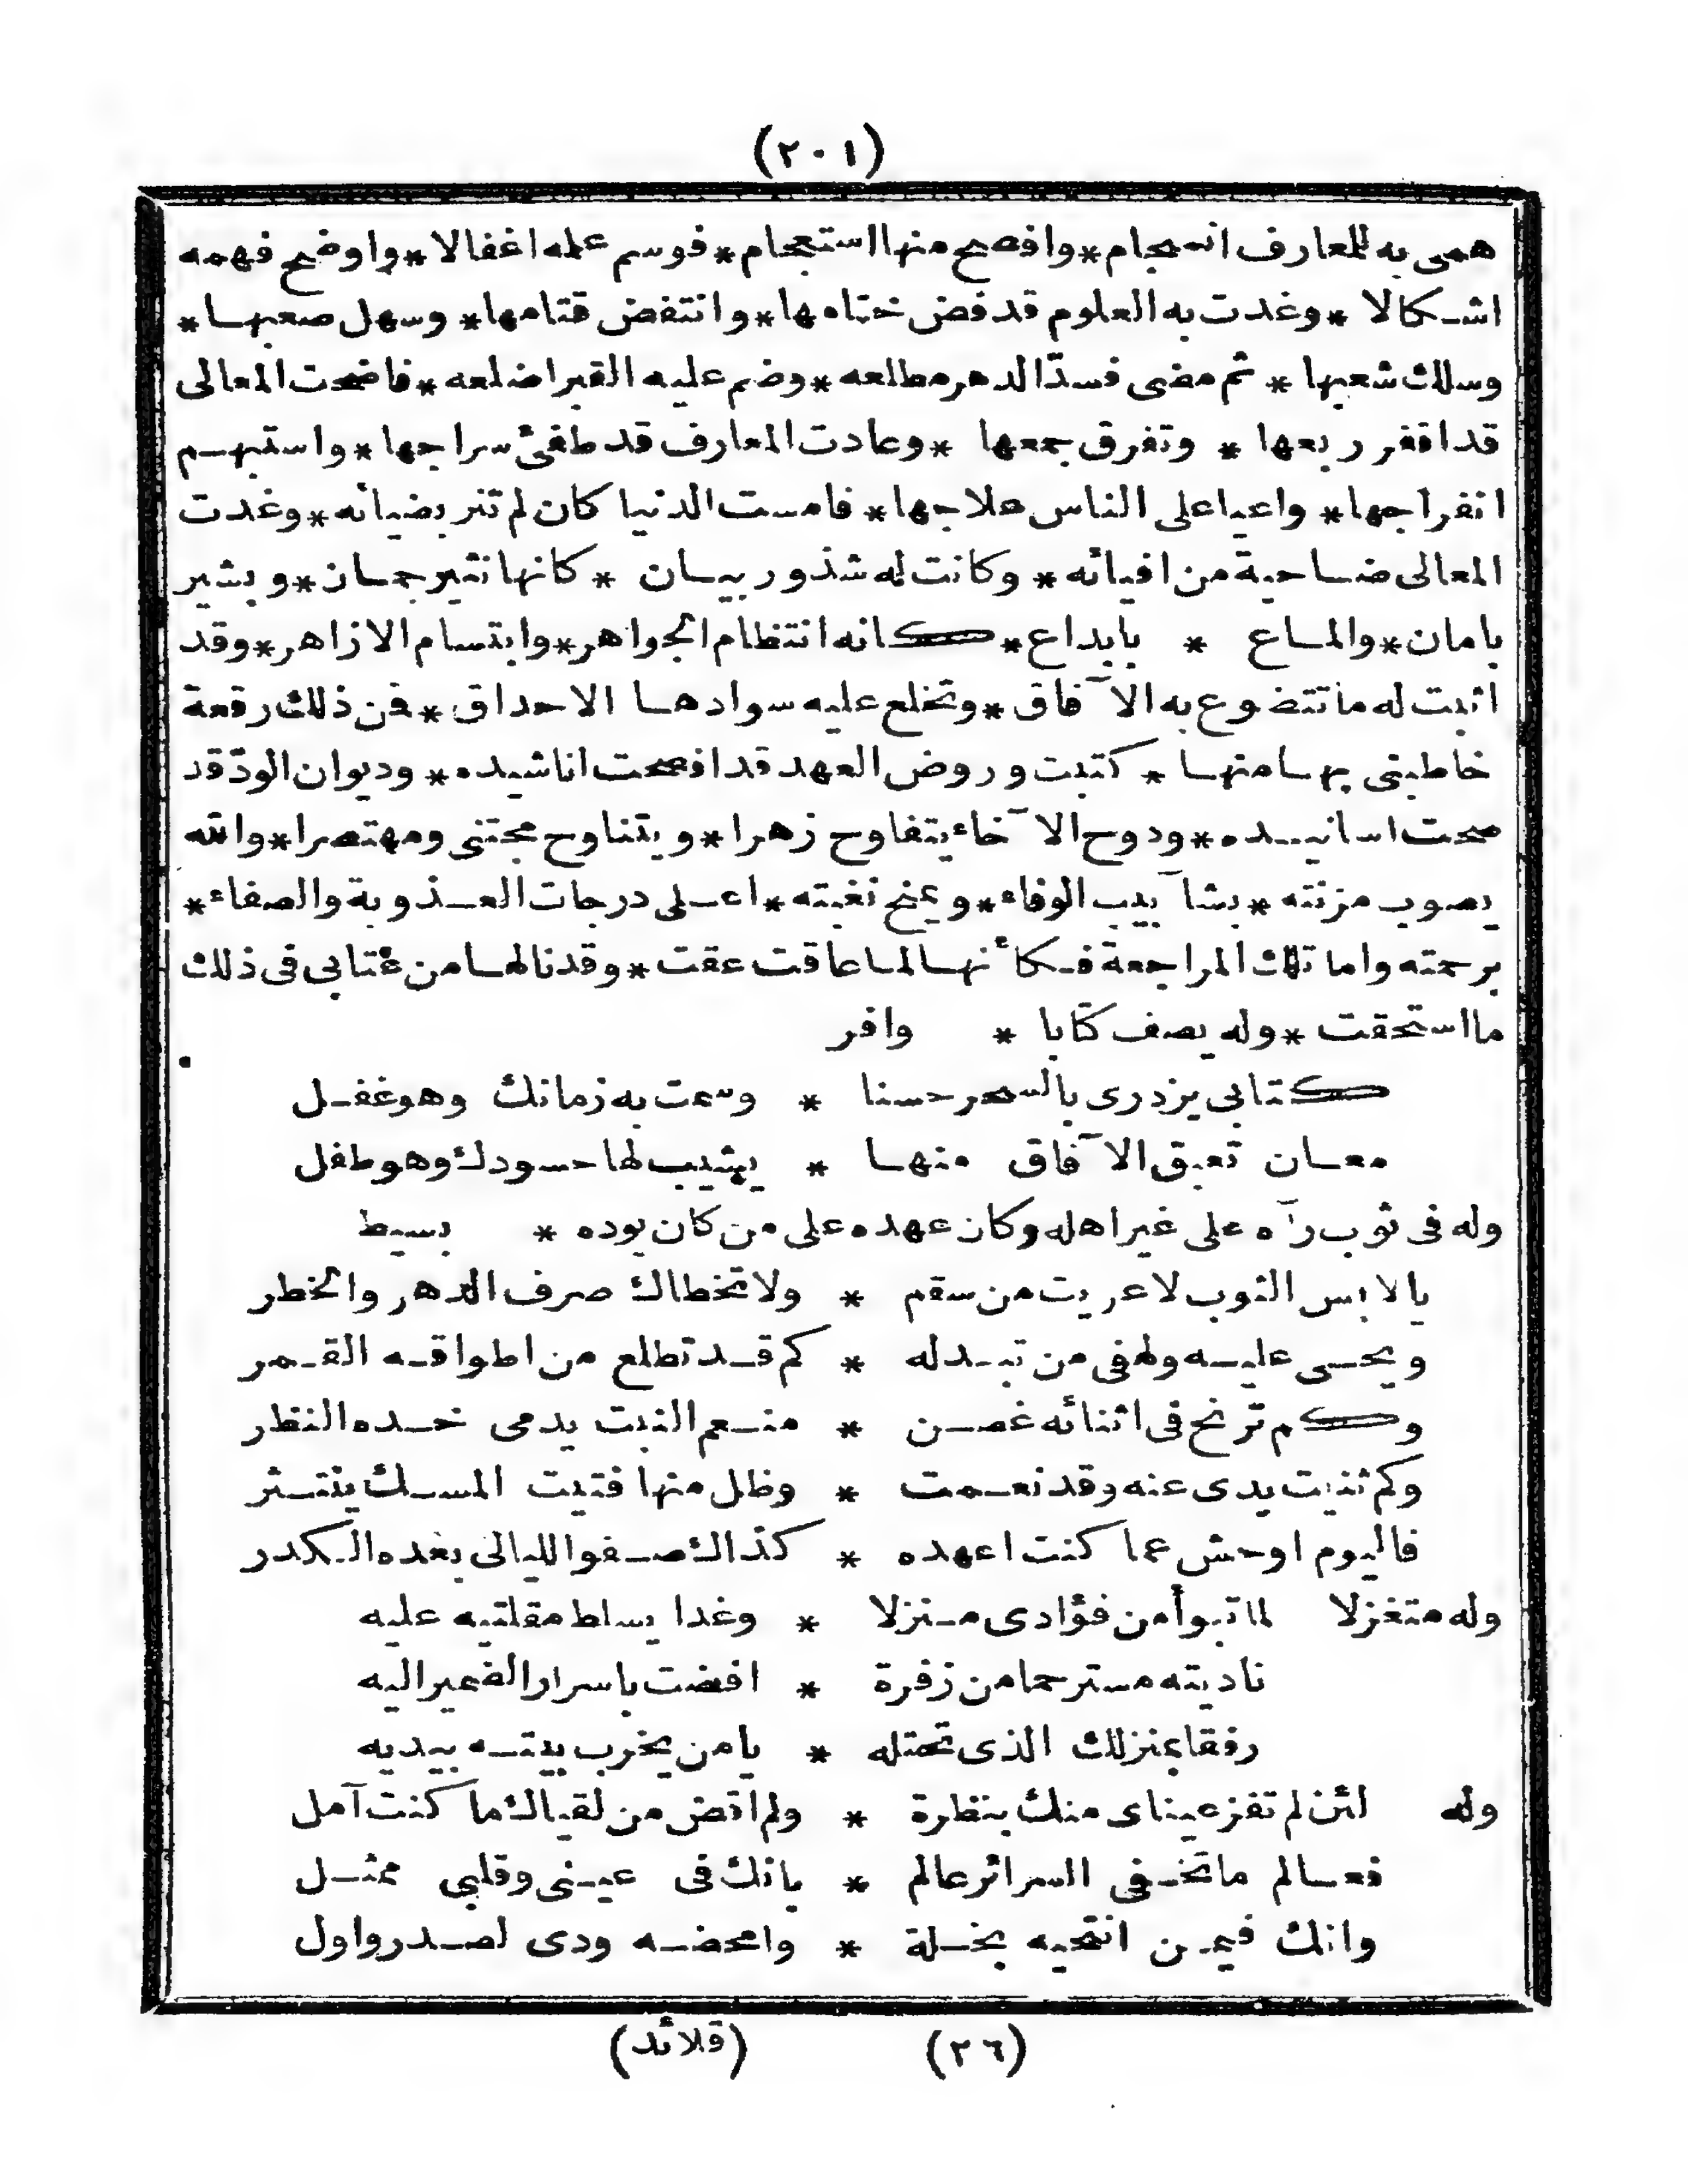 (٢٠١)
همى به للمعارف انسجام * وافصح منها استعجام * فوسم علمه اغفالا * واوضح فهمه
اشكالا * وغدت به العلوم قد فض ختامها * وانتفض قتامها * وسهل صعبها *
وسلك شعبها * ثم مضى فسدّ الدهر مطلعه * وضم عليه القبر اضلعه * فاضحت المعالى
قد اقفر ربعها * وتفرق جمعها * وعادت المعارف قد طفئ سراجها * واستبهم
انفراجها * واعيا على الناس علاجها * فامست الدنيا كان لم تنر بضيائه * وغدت
المعالى ضاحية من افيائه * وكانت له شذور بيان * كانها نثير جمان * وبشير
بامان * والماع * بابداع * كانه انتظام الجواهر * وابتسام الازاهر * وقد
اثبت له ما تتضوع به الآفاق * وتخلع عليه سوادها الاحداق * فمن ذلك رقعة
خاطبنى بها منها * كتبت وروض العهد قد افصحت اناشيده * وديوان الودّ قد
صحت اسانيده * ودوح الآخاء يتفاوح زهرا * ويتناوح مجتنى ومهتصرا * والله
يصوب مزنته * بشآبيب الوفاء * ويمنح نغبته * اعلى درجات العذوبة والصفاء *
برحمته واما تلك المراجعة فكأنها لما عاقت عقت * وقد نالها من عتابى فى ذلك
ما استحقت * وله يصف كتابا * وافر
كتابى يزدرى بالسحر حسنا * وسمت به زمانك وهو غفل
معان تعبق الآفاق منها * يشيب لها حسودك وهو طفل
وله فى ثوب رآه على غير اهله وكان عهده على من كان يوده * بسيط
يا لابس الثوب لا عريت من سقم * ولا تخطاك صرف الدهر والخطر
ويحى عليه ولهفى من تبدله * كم قد تطلع من اطواقه القمر
وكم ترنح فى اثنائه غصن * منعم النبت يدمى خده النظر
وكم ثنيت يدى عنه وقد نعمت * وظل منها فتيت المسك ينتثر
فاليوم اوحش عما كنت اعهده * كذاك صفو الليالى بعده الكدر
وله متغزلا لما تبوأ من فؤادى منزلا * وغدا يسلط مقلتيه عليه
ناديته مسترحما من زفرة * افضت باسرار الضمير اليه
رفقا بمنزلك الذى تحتله * يا من يخرب بيته بيديه
وله لئن لم تفز عيناى منك بنظرة * ولم اقض من لقياك ما كنت آمل
فعالم ما تخفى السرائر عالم * بانك فى عينى وقلبى ممثل
وانك فيمن انتحيه بخلة * وامحضه ودى لصدر واول
(٢٦) (قلائد)